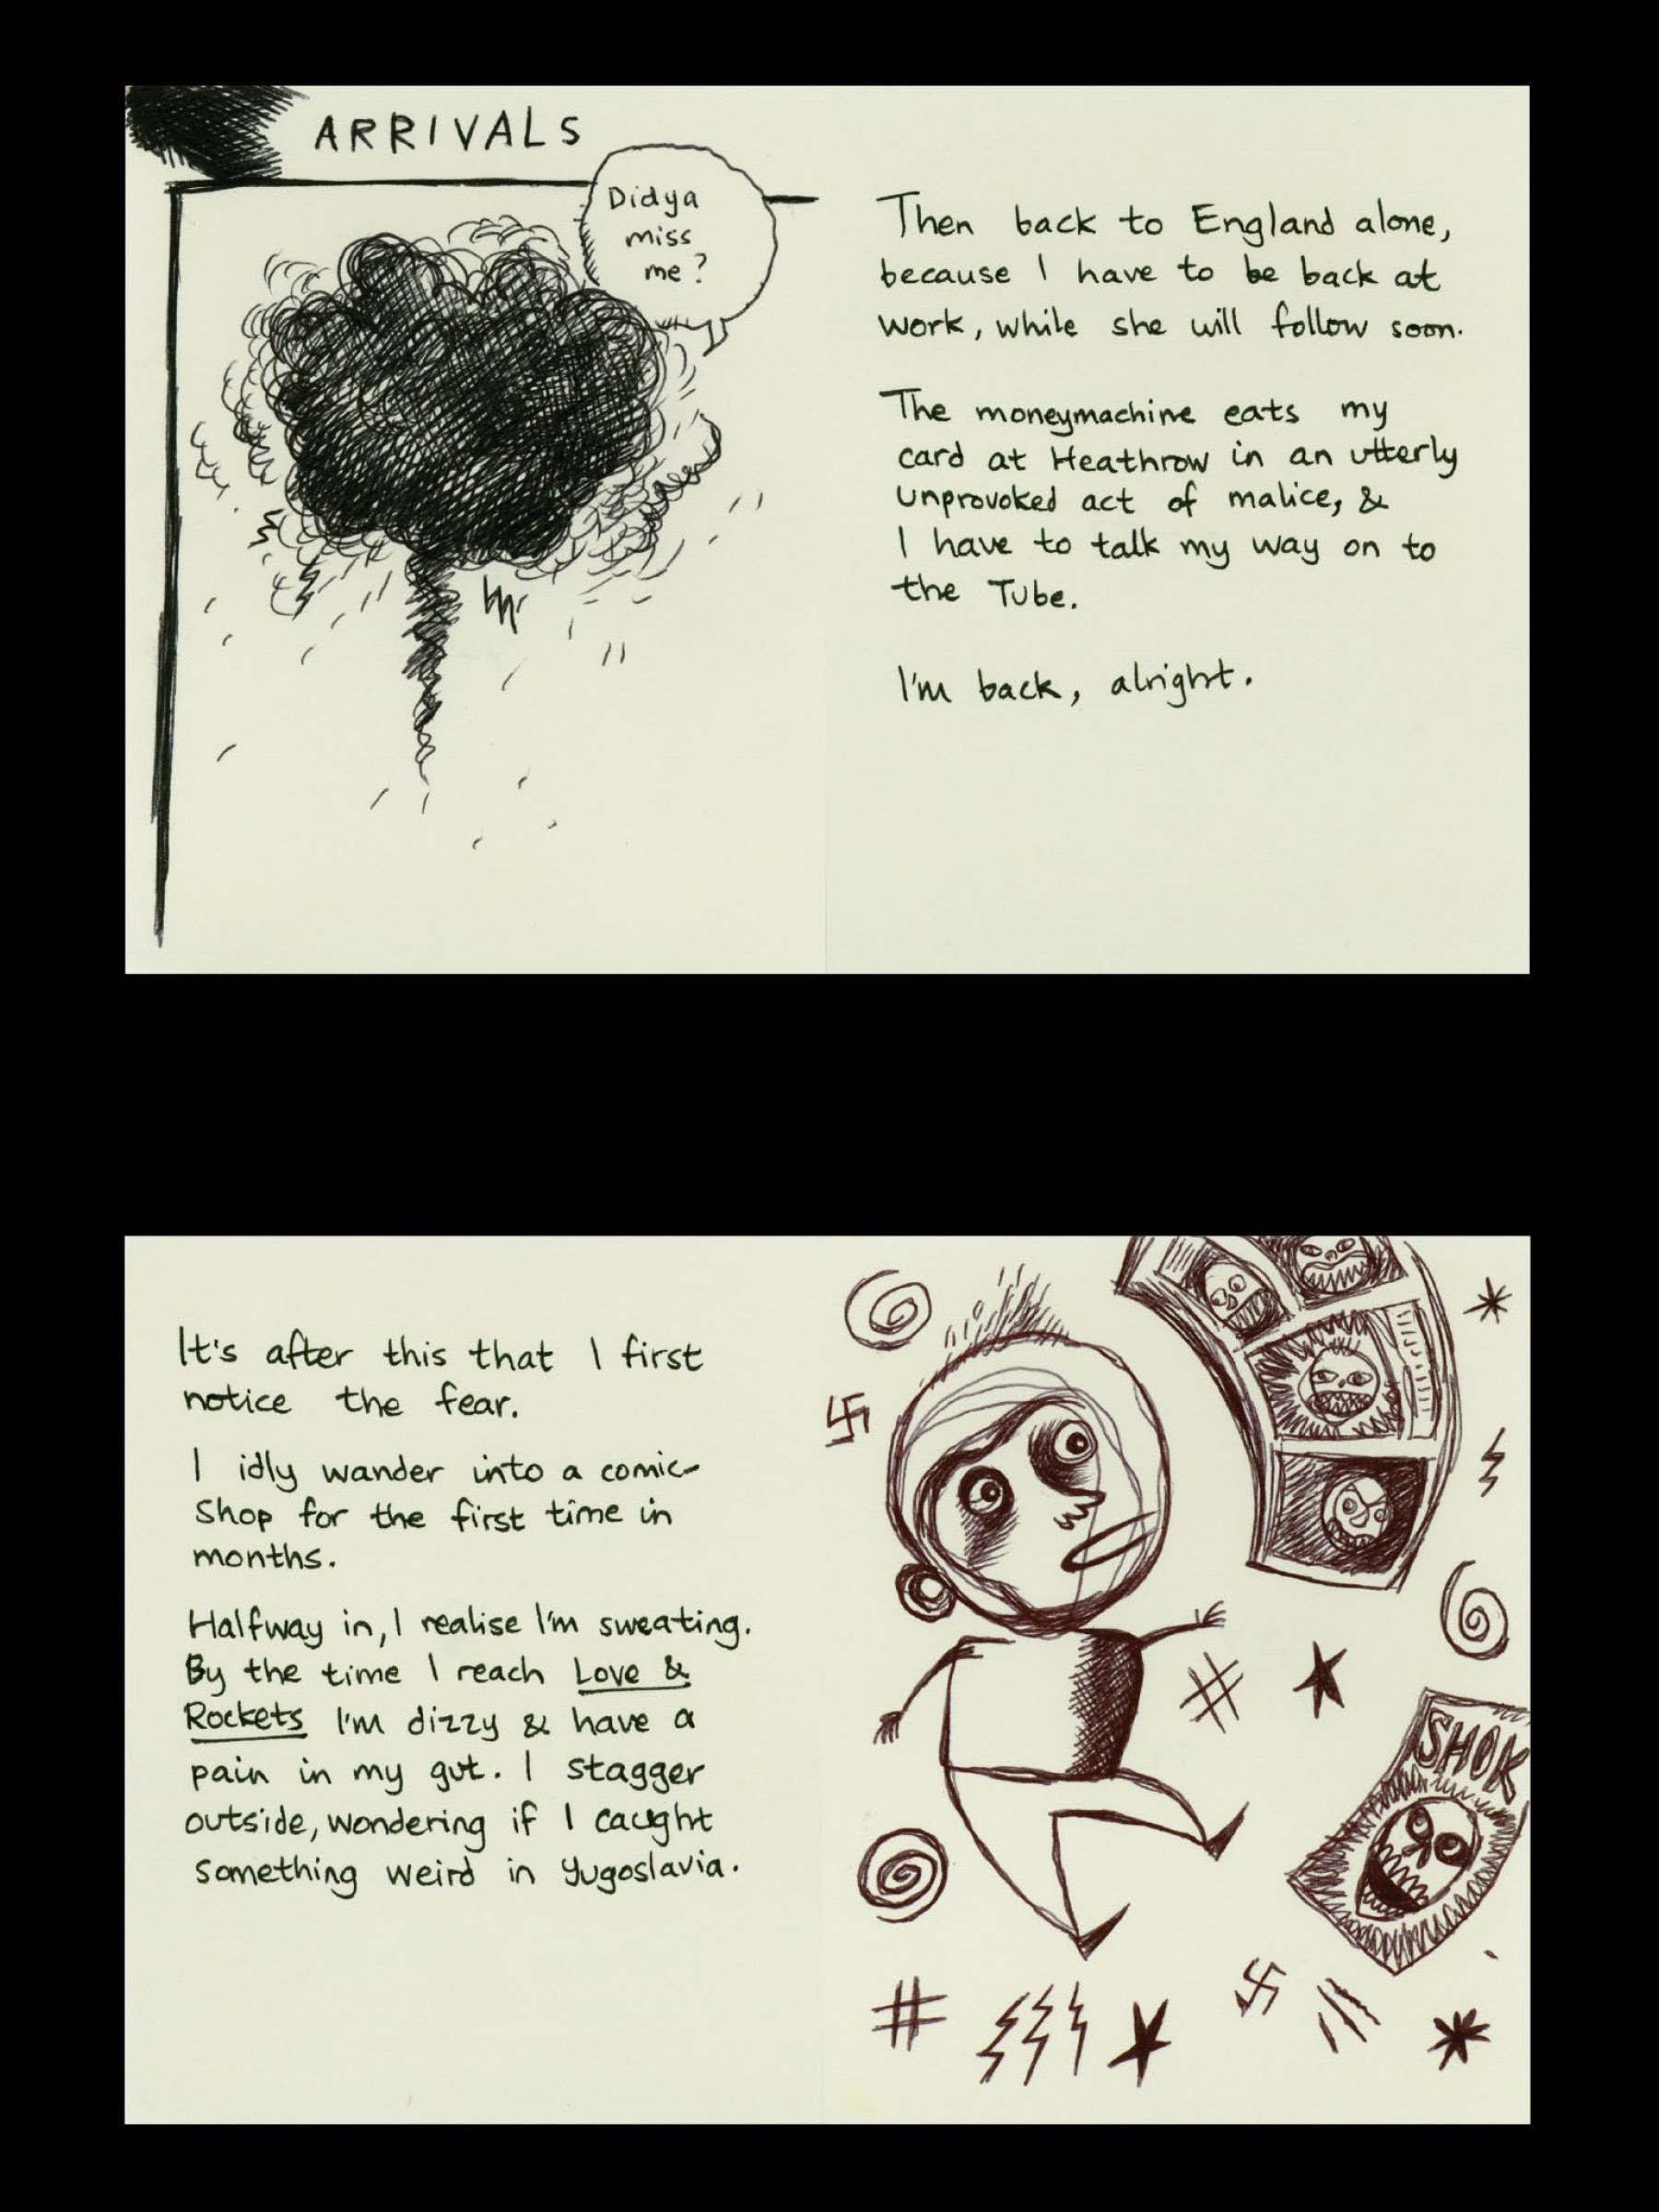 ARRIVALS
Didya
miss
me?
Then back to England alone,
because I have to be back at
work, while she will follow soon.
The moneymachine eats my
card at Heathrow in an utterly
unprovoked act of malice, &
I have to talk my way on to
the Tube.
I'm back, alright.
It's after this that I first
notice the fear.
I idly wander into a comic-
shop for the first time in
months.
Halfway in, I realise I'm sweating.
By the time I reach Love &
Rockets I'm dizzy & have a
pain in my gut. I stagger
outside, wondering if I caught
something weird in Yugoslavia.
SHOK